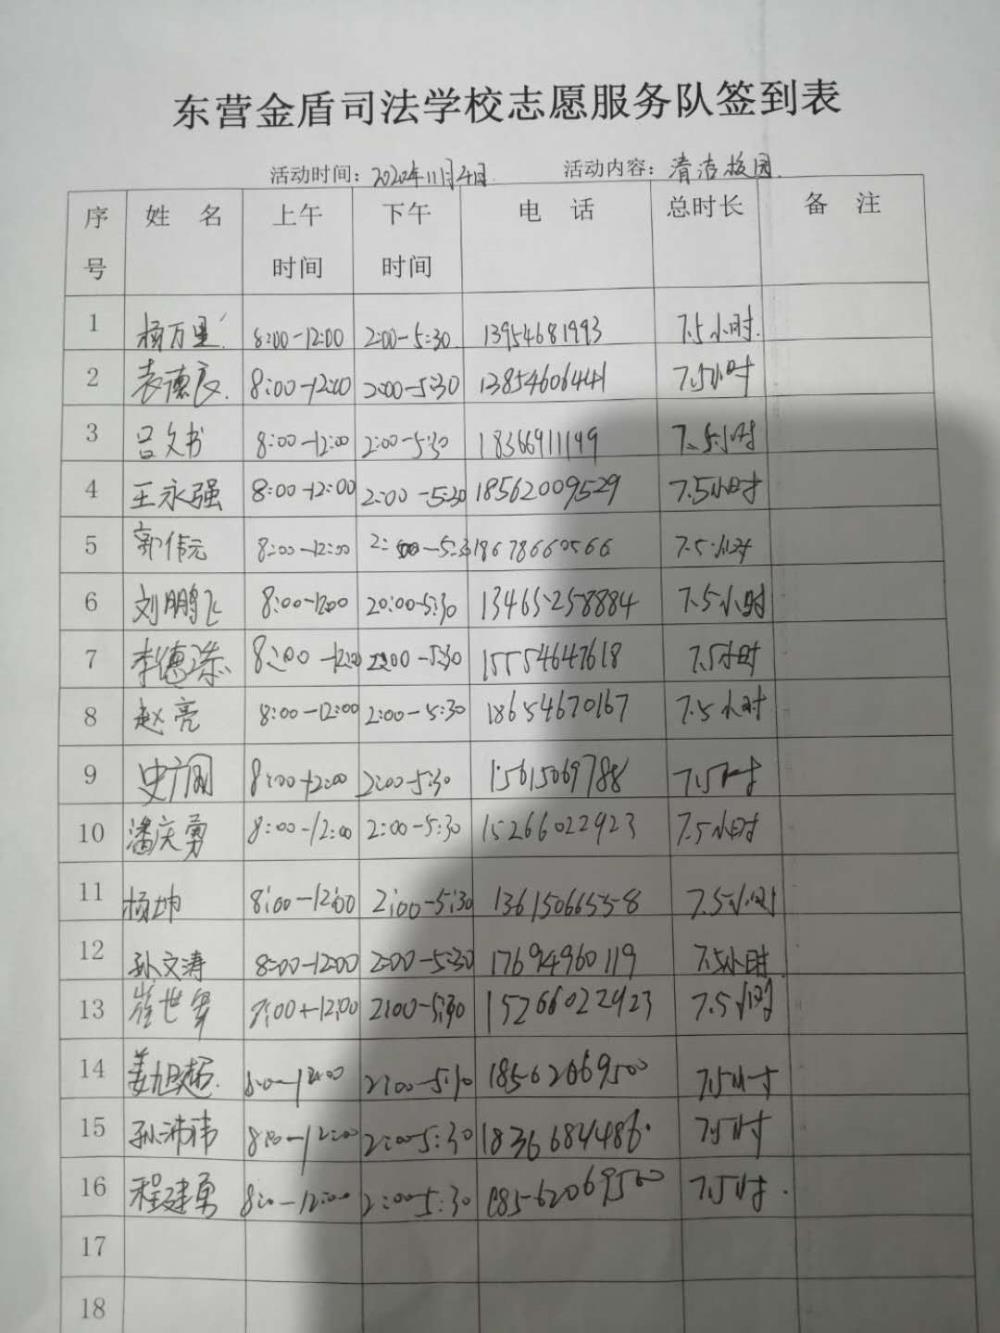 东营金盾司法学校志愿服务队签到表
活动时间：2020年11月4日 活动内容：清洁校园.
序号 姓 名 上午时间 下午时间 电 话 总时长 备 注
1 杨万里 8:00-12:00 2:00-5:30 13954681993 7.5小时.
2 袁德良. 8:00-12:00 2:00-5:30 13854606441 7.5小时
3 吕文书 8:00-12:00 2:00-5:30 18366911199 7.5小时
4 王永强 8:00-12:00 2:00-5:30 18562009529 7.5小时
5 郭伟元 8:00-12:00 2:00-5:3 18678660566 7.5小时
6 刘鹏飞 8:00-12:00 20:00-5:30 13465258884 7.5小时
7 李德 8:00-12:00 2:00-5:30 15554647618 7.5小时
8 赵亮 8:00-12:00 2:00-5:30 18654670167 7.5小时
9 史广刚 8:00-12:00 2:00-5:30 15615069788 7.5小时
10 潘庆勇 8:00-12:00 2:00-5:30 15266022923 7.5小时
11 杨坤 8:00-12:00 2:00-5:30 13615066558 7.5小时
12 孙文涛 8:00-12:00 2:00-5:30 17694960119 7.5小时
13 崔世 12:00 2:00-5:30 15266022923 7.5小时
14 姜旭超. 8:0-12:00 2:00-5:30 18562069500 7.5小时
15 孙沛祎 8:00-12:00 2:00-5:30 18366824486. 7.5时
16 程建勇 8:0-12:00 2:00-5:30 18562069500 7.5时.
17
18